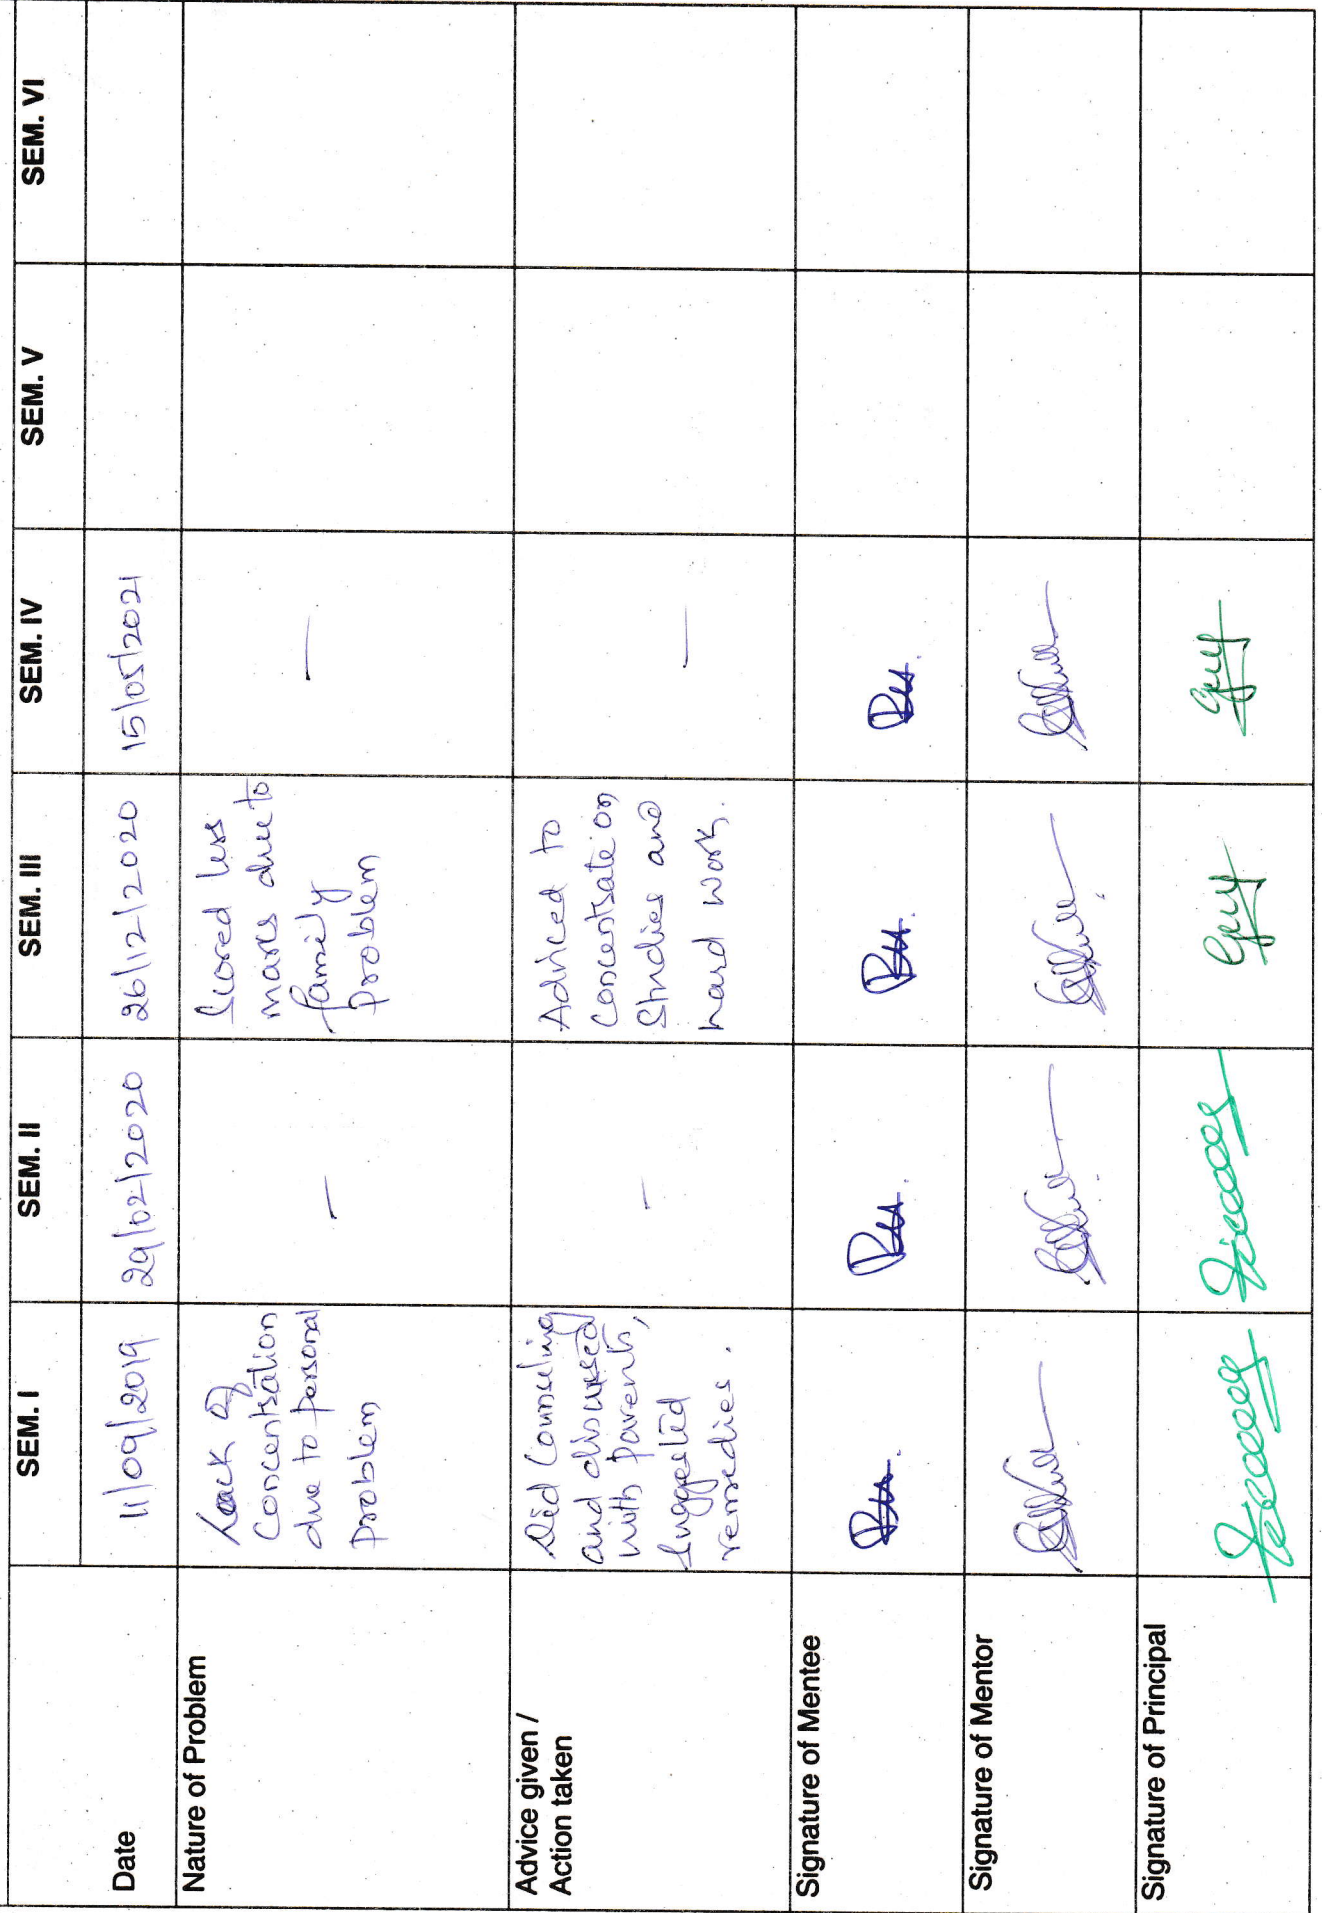 SEM. I
SEM. II
SEM. III
SEM. IV
SEM. V
SEM. VI
Date
11/09/2019
29/02/2020
26/12/2020
15/05/2021
Nature of Problem
Lack of
Concentration
due to personal
problem
—
Scored less
marks due to
family
problem
—
Advice given /
Action taken
Did Counseling
and discussed
with parents,
Suggested
remedies.
—
Adviced to
Concentrate on
Studies and
hard work.
—
Signature of Mentee
Signature of Mentor
Signature of Principal